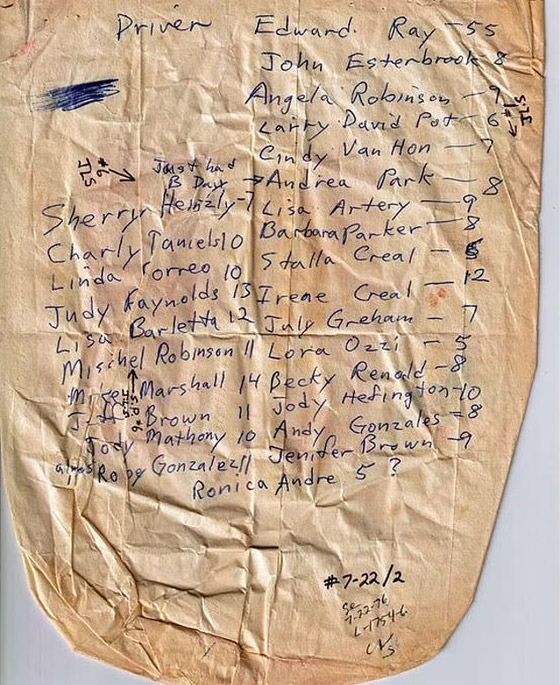 Driver Edward. Ray - 55
John Esterbrook 8
Angela Robinson - 9
Larry David Pot - 6
Cindy Van Hon - 7
Just had
B Day → Andrea Park - 8
Sherryr Heinzly - 7
Lisa Artery - 9
Barbara Parker - 8
Charly Taniels 10
Stalla Creal -
Linda Torreo 10
Irene Creal - 12
Judy Raynolds 13
July Greham - 7
Lisa Barletta 12
Lora Ozzi - 5
Mischel Robinson 11
Becky Renold - 8
Marshall 14
Jody Hefington - 10
Brown 11
Andy Gonzales - 8
Jody Mathony 10
Jenifer Brown - 9
Gonzalez 11
Ronica Andre 5 ?
#7-22/2
7-22-76
L-1754-6